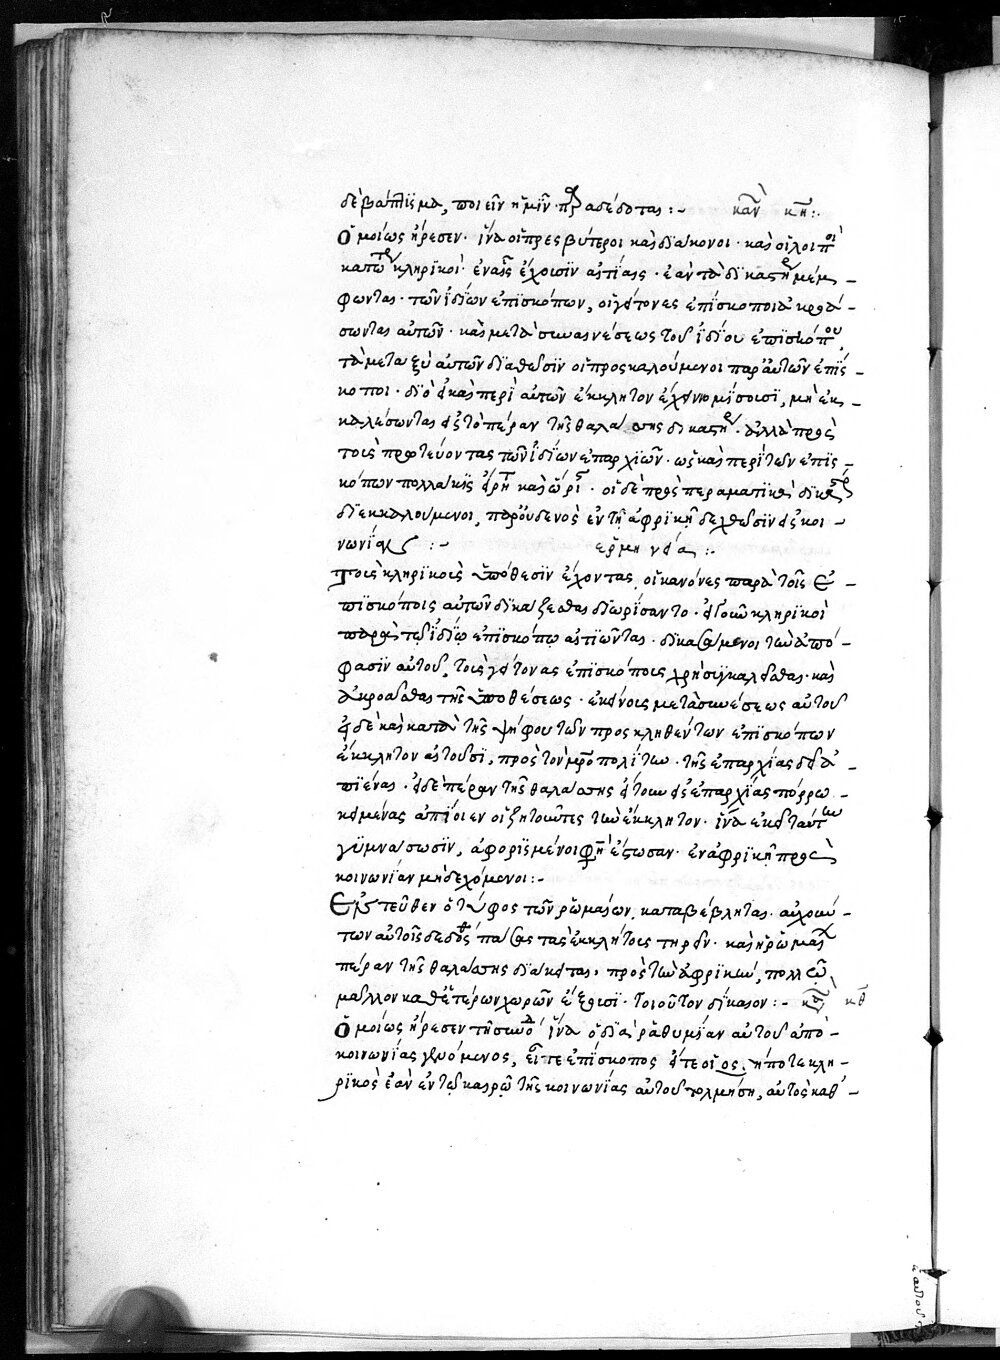 δὲ βάπτϊσμα, ποιεῖν ἡμῖν παραδέδοται :- κανὼν κη :
Ὁμοίως ἤρεσεν· ἵνα οἱ πρεσβύτεροι καὶ διάκονοι· καὶ οἱ λοιποὶ
κατώτεροι κληρϊκοὶ· ἐν αἷς ἔχοισϊν αἰτίαις· ἐὰν τὰ δϊκαστήρια μέμ -
φωνται· τῶν ἰδΐων ἐπϊσκόπων, οἱ γείτονες ἐπίσκοποι ἀκροά -
σωνται αὐτῶν· καὶ μετὰ συναινέσεως τοῦ ἰδΐου ἐπϊσκόπου,
τὰ μεταξὺ αὐτῶν διαθῶσϊν οἱ προσκαλούμενοι παρ' αὐτῶν ἐπίσ -
κοποι· διὸ εἰ καὶ περὶ αὐτῶν ἔκκλητον ἔχειν νομίσοισϊ, μὴ ἐκ -
καλέσωνται εἰς τὸ πέραν τῆς θαλάσσης δικαστήρια· ἀλλὰ πρὸς
τοὶς πρωτεύοντας τῶν ἰδΐων ἐπαρχϊῶν· ὡς καὶ περὶ τῶν ἐπϊσ -
κόπων πολλάκϊς εἴρηται καὶ ὥρισται· οἱ δὲ πρὸς περαματϊκὰ δϊκαστήρια
δϊεκκαλούμενοι, παρ' οὐδενὸς ἐν τῇ ἀφρϊκῇ δεχθῶσϊν εἰς κοι -
νωνίαν :- ἑρμηνεία :-
Τοὶς κληρϊκοὶς ὑπόθεσϊν ἔχοντας, οἱ κανόνες παρὰ τοῖς ἐ -
πϊσκόποις αὐτῶν δϊκάζεσθαι διωρίσαντο· εἰ τοίνυν κληρϊκοὶ
παρὰ τῷ ἰδΐῳ ἐπϊσκόπῳ αἰτϊῶνται· δϊκασάμενοι τὴν ἀπό -
φασϊν αὐτοῦ, τοὶς γείτονας ἐπϊσκόποις χρὴ συγκαλεῖσθαι· καὶ
ἀκροᾶσθαι τῆς ὑποθέσεως· ἐκείνοις μετὰ συναινέσεως αὐτοῦ
εἰ δὲ καὶ κατὰ τῆς ψήφου τῶν προσκληθέντων ἐπϊσκόπων
ἔκκλητον αἰτοῦσϊ, πρὸς τὸν μητροπολίτην· τῆς ἐπαρχίας δεῖ ἀ -
πϊέναι· εἰ δὲ πέραν τῆς θαλάσσης ἤτουν εἰς ἐπαρχίας πόρρω -
κειμένας ἀπΐοιεν οἱ ζητοῦντες τὴν ἔκκλητον· ἵνα ἐκεῖ ταύτην
γυμνάσωσϊν, ἀφορϊσμένοι φησὶν ἔστωσαν· ἐν ἀφρϊκῇ πρὸς
κοινωνίαν μὴ δεχόμενοι :-
Ἐντεῦθεν ὁ τῦφος τῶν ῥωμαίων, καταβέβληται· αὐχούν -
των αὐτοῖς δεδόσθαι πάσας τὰς ἐκκλήτοις τηρεῖν· καὶ ἡ ῥώμη
πέραν τῆς θαλάσσης διάκειται· πρὸς τὴν ἀφρϊκὴν, πολλῷ
μᾶλλον καθ' ἑτέρων χωρῶν ἔξεστϊ· τοιοῦτον δίκαιον :- κανὼν κθ
Ὁμοίως ἤρεσεν τῇ συνόδῳ ἵνα ὁ διὰ ῥᾳθυμίαν αὐτοῦ ἀπὸ -
κοινωνίας γενόμενος, εἴτε ἐπίσκοπος εἴτε οἷος δήποτε κλη -
ρϊκὸς ἐὰν ἐν τῷ καιρῷ τῆς κοινωνίας αὐτοῦ τολμήσῃ, αὐτὸς καθ' -